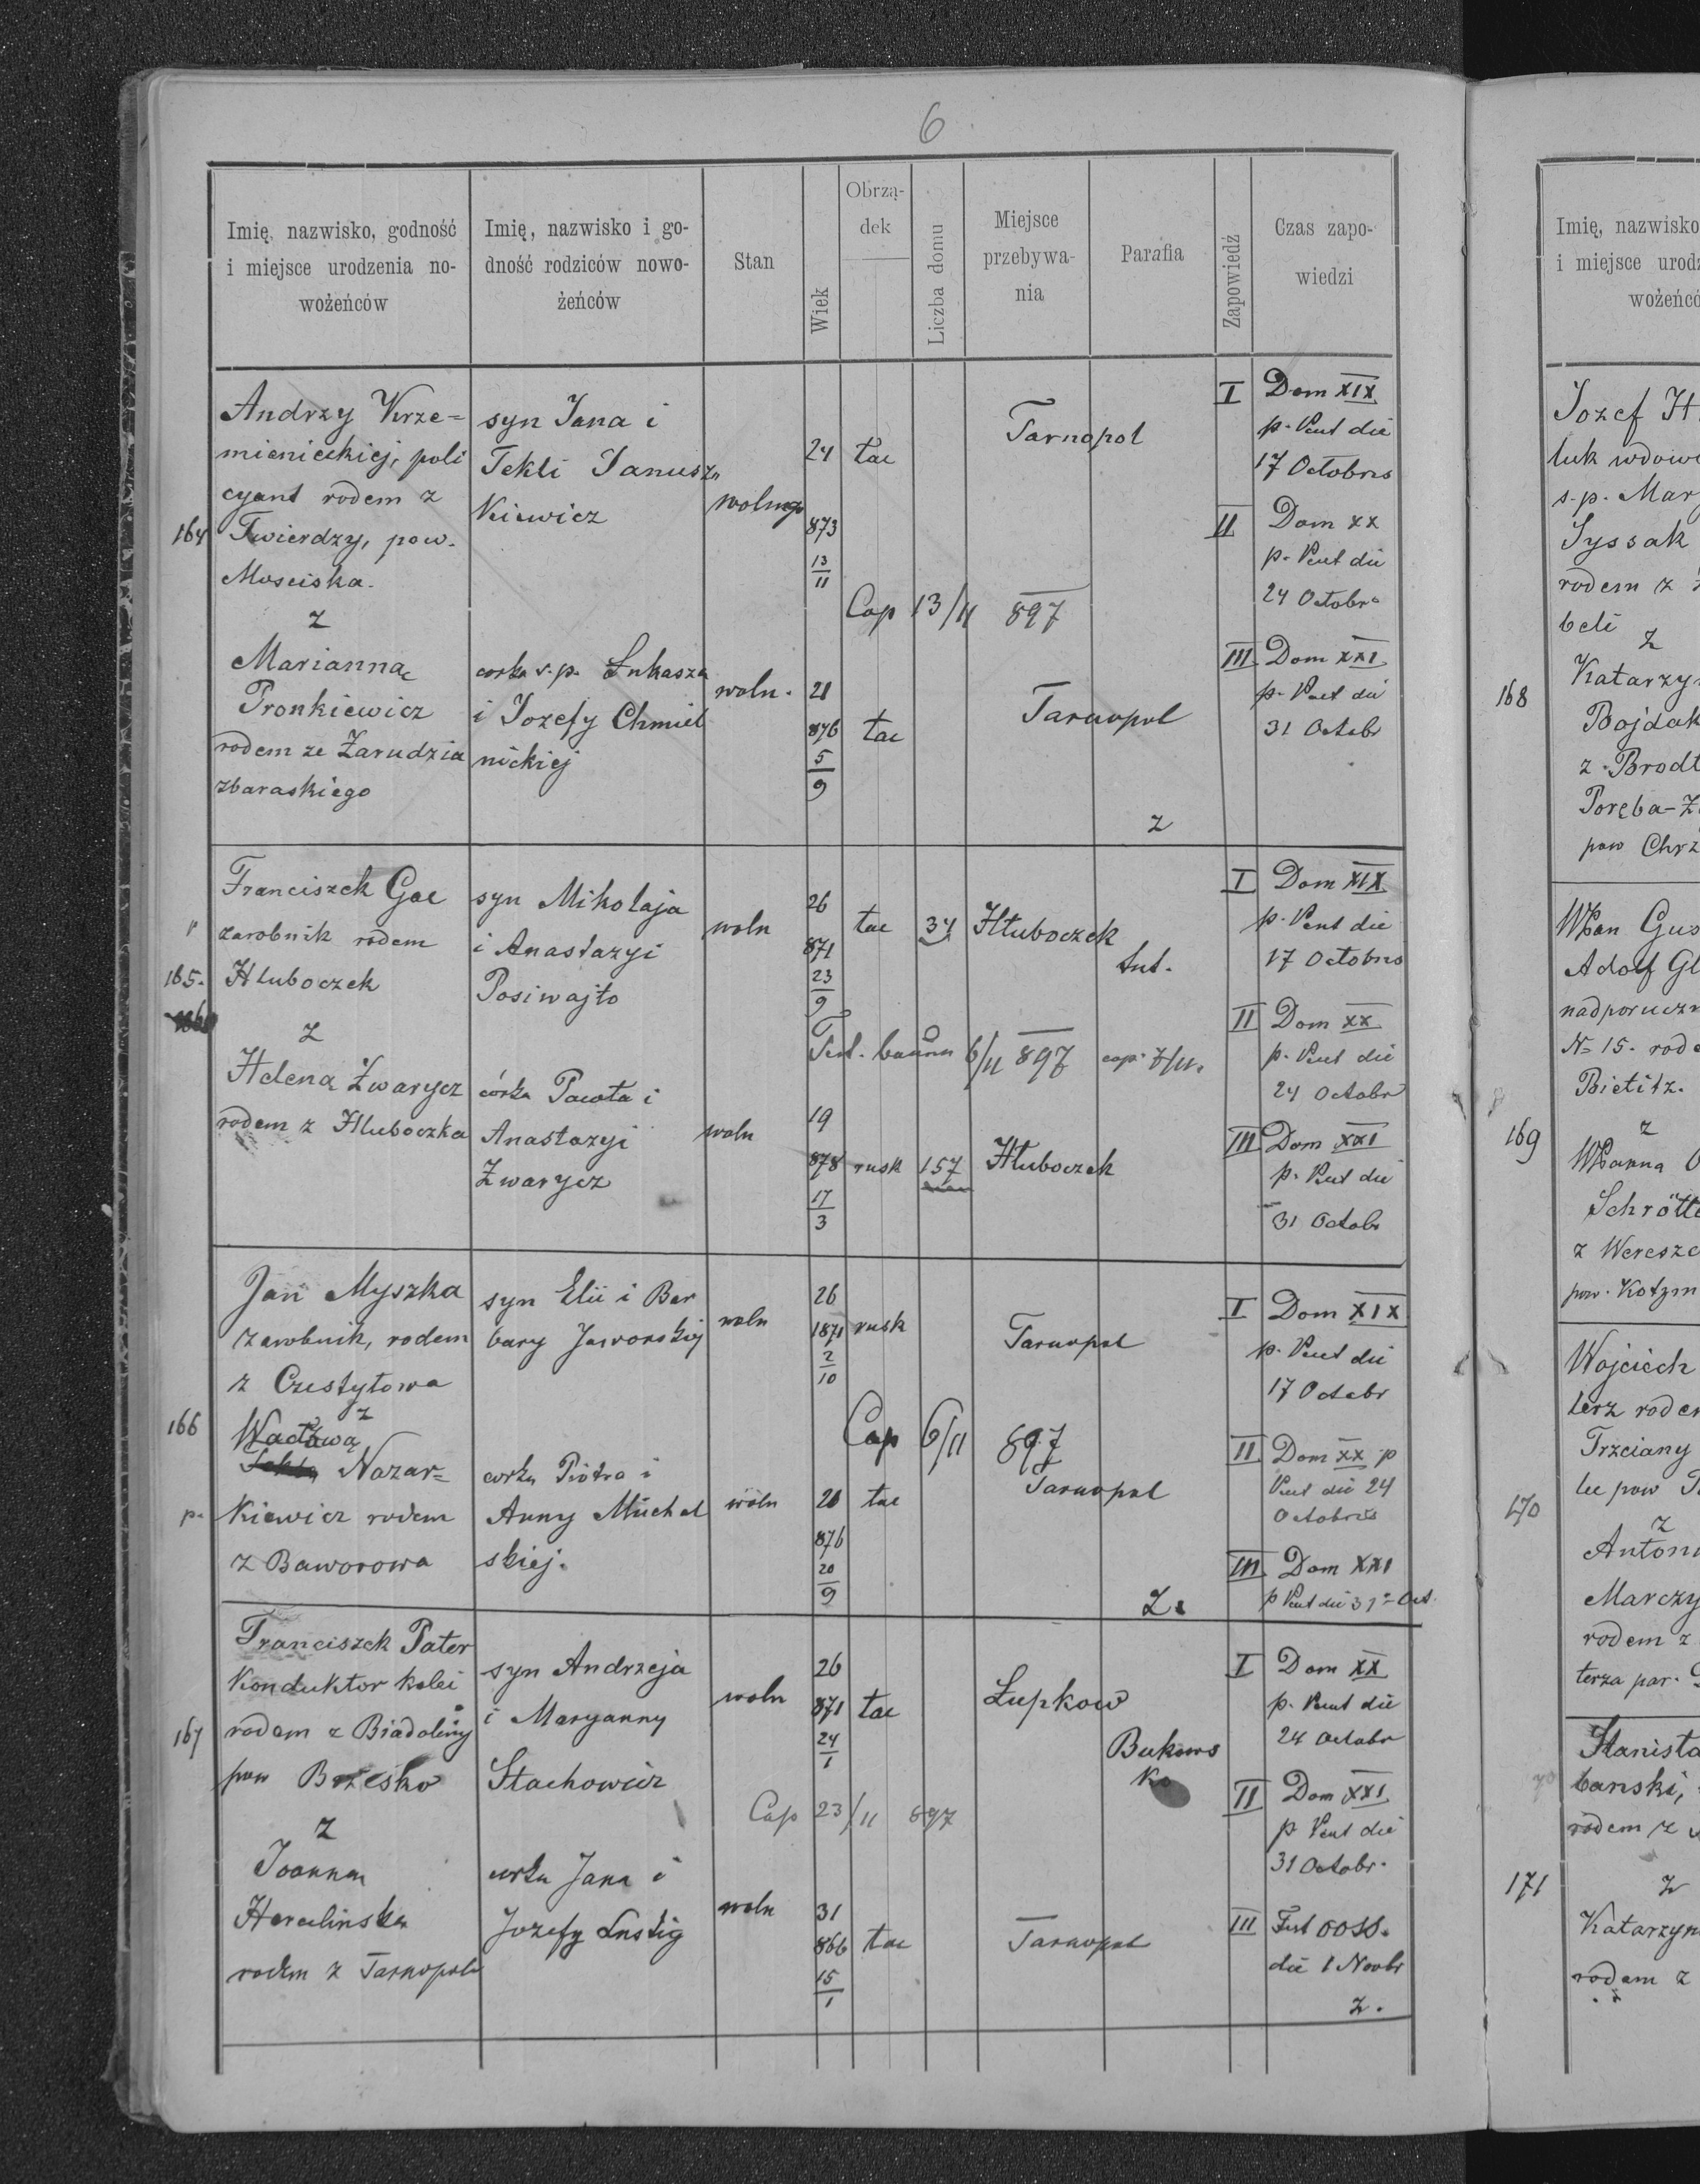 6
Imię, nazwisko, godność
i miejsce urodzenia no-
wożeńców
Imię, nazwisko i go-
dność rodziców nowo-
żeńców
Stan
Wiek
Obrzą-
dek
Liczba domu
Miejsce
przebywa-
nia
Parafia
Zapowiedź
Czas zapo-
wiedzi
164
Andrzy Krze=
mienieckiej, poli
cyant rodem z
Twierdzy, pow.
Mosciska.
z
Marianną
Pronkiewicz
rodem ze Zarudzia
zbaraskiego
syn Jana i
Tekli Janusz
Kiewicz
corka s.p. Łukasza
i Jozefy Chmiel
nickiej
wolny
woln.
24
873
13
11
21
876
5
9
łac
Cap 13/11 897
łac
Tarnopol
Tarnopol
z
I Dom XIX
p. Pent die
17 Octobris
II Dom XX
p. Pent die
24 Octobr
III Dom XXI
p. Pent die
31 Octobr
165.
Franciszek Gac
zarobnik rodem
Hluboczek
z
Heleną Zwarycz
rodem z Hluboczka
syn Mikołaja
i Anastazyi
Posiwajło
córka Pawła i
Anastazyi
Zwarycz
woln
woln
26
871
23
9
19
878
17
3
łac 34 Hłuboczek
6/11 897 cap. 7/11.
rusk 157 Hłuboczek
I Dom XIX
p. Pent die
17 Octobris
II Dom XX
p. Pent die
24 Octobr
III Dom XXI
p. Pent die
31 Octobr
166
p.
Jan Myszka
zarobnik, rodem
z Czestyłowa
z
Wacławą
Nazar=
Kiewicz rodem
z Baworowa
syn Elii i Bar
bary Jaworskiej
corka Piotra i
Anny Michal
skiej.
woln
woln
26
1871
2
10
21
876
20
9
rusk
Cap 6/11 897
łac
Tarnopol
Tarnopol
Z.
I Dom XIX
p. Pent die
17 Octobr
II Dom XX p
Pent die 24
Octobris
III Dom XXI
p Pent die 31 Oct.
167
Franciszek Pater
Konduktor kolei
rodem z Biadoliny
pow Brzesko
z
Joanną
rodem z Tarnopola
syn Andrzeja
i Maryanny
Stachowicz
corka Jana i
Jozefy Lustig
woln
woln
26
871
24
1
31
866
15
1
łac
Cap 23/11 897
łac
Łupkow
Tarnopol
Bukows
ko
I Dom XX
p. Pent die
24 Octobr
II Dom XXI
p Pent die
31 Octobr.
III Fest OOSS.
die 1 Novbr
z.
Imię, nazwisko
i miejsce urodz
wożeńcó
168
Jozef
luk wdowi
s.p. Mar
Syssak
rodem z
beli
z
Katarzy
Bojdak
z Brodł
Poręba-
pow Chrz
169
WPan Gus
Adolf Gl
nadporuczn
N= 15. rod
Bielitz.
z
WPanna
Schrötte
z Weresz
pow. Kotzm
170
Wojciech
lerz roden
Trzciany
z
Anton
Marczy
rodem z
terza par.
171
Stanisła
bański,
rodem z
z
Katarzyn
rodem z